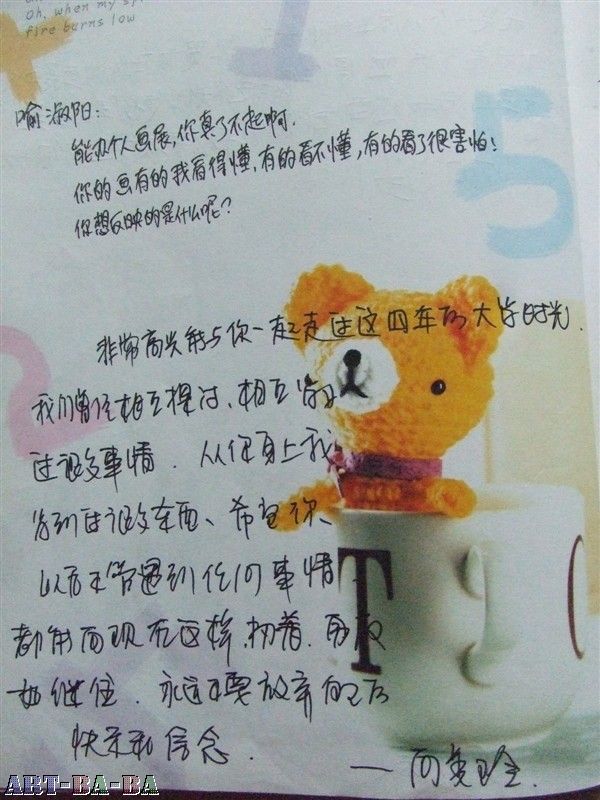 Oh, when my sp
fire burns low
喻淑阳:
能办个人画展,你真了不起啊.
你的画有的我看得懂,有的看不懂,有的看了很害怕!
你想反映的是什么呢?
非常高兴能与你一起走过这四年的大学时光.
我们曾经相互探讨、相互
过很多事情. 从你身上我
学到过很多东西、希望你、
以后不管遇到任何事情、
都能向现在这样,执着.
永远不要放弃自己的
快乐和信念.
T
ART-BA-BA